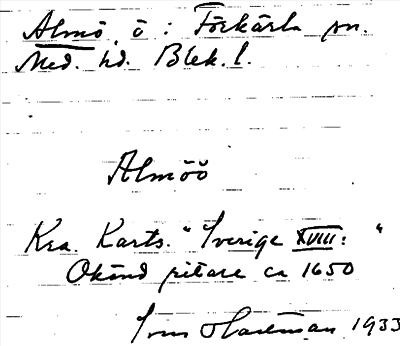 Almö, ö i Förkärla sn.
Med. hd. Blek. l.
Almöö
Kra. Karts. "Sverige XVIII: "
Okänd ritare ca 1650
Hartman 1933